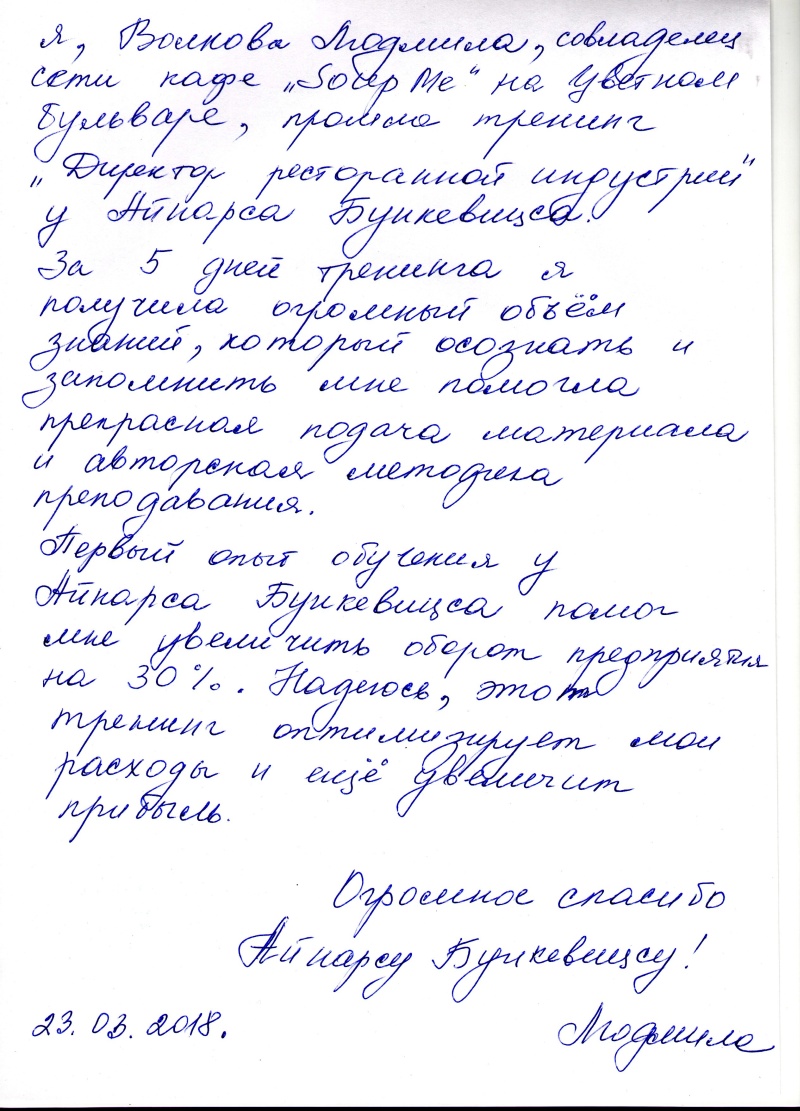 я, Волкова Людмила, совладелец
сети кафе „Soup Me“ на Цветном
бульваре, прошла тренинг
„Директор ресторанной индустрии“
у Айнарса Бункевицса.
За 5 дней тренинга я
получила огромный объём
знаний, который осознать и
запомнить мне помогла
прекрасная подача материала
и авторская методика
преподавания.
Первый опыт обучения у
Айнарса Бункевицса помог
мне увеличить оборот предприятия
на 30%. Надеюсь, этот
тренинг оптимизирует мои
расходы и ещё увеличит
прибыль.
Огромное спасибо
Айнарсу Бункевицсу!
23.03.2018.
Людмила